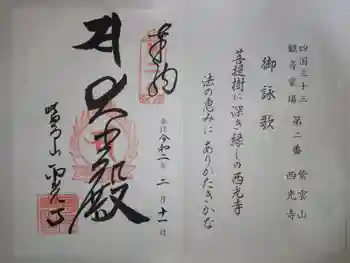 四国三十三
観音霊場 第二番 紫雲山
西光寺
御詠歌
菩提樹に深き縁しの西光寺
法の恵みに ありがたきかな
奉拝
令和二年 二月十一日
大悲殿
紫雲山 西光寺